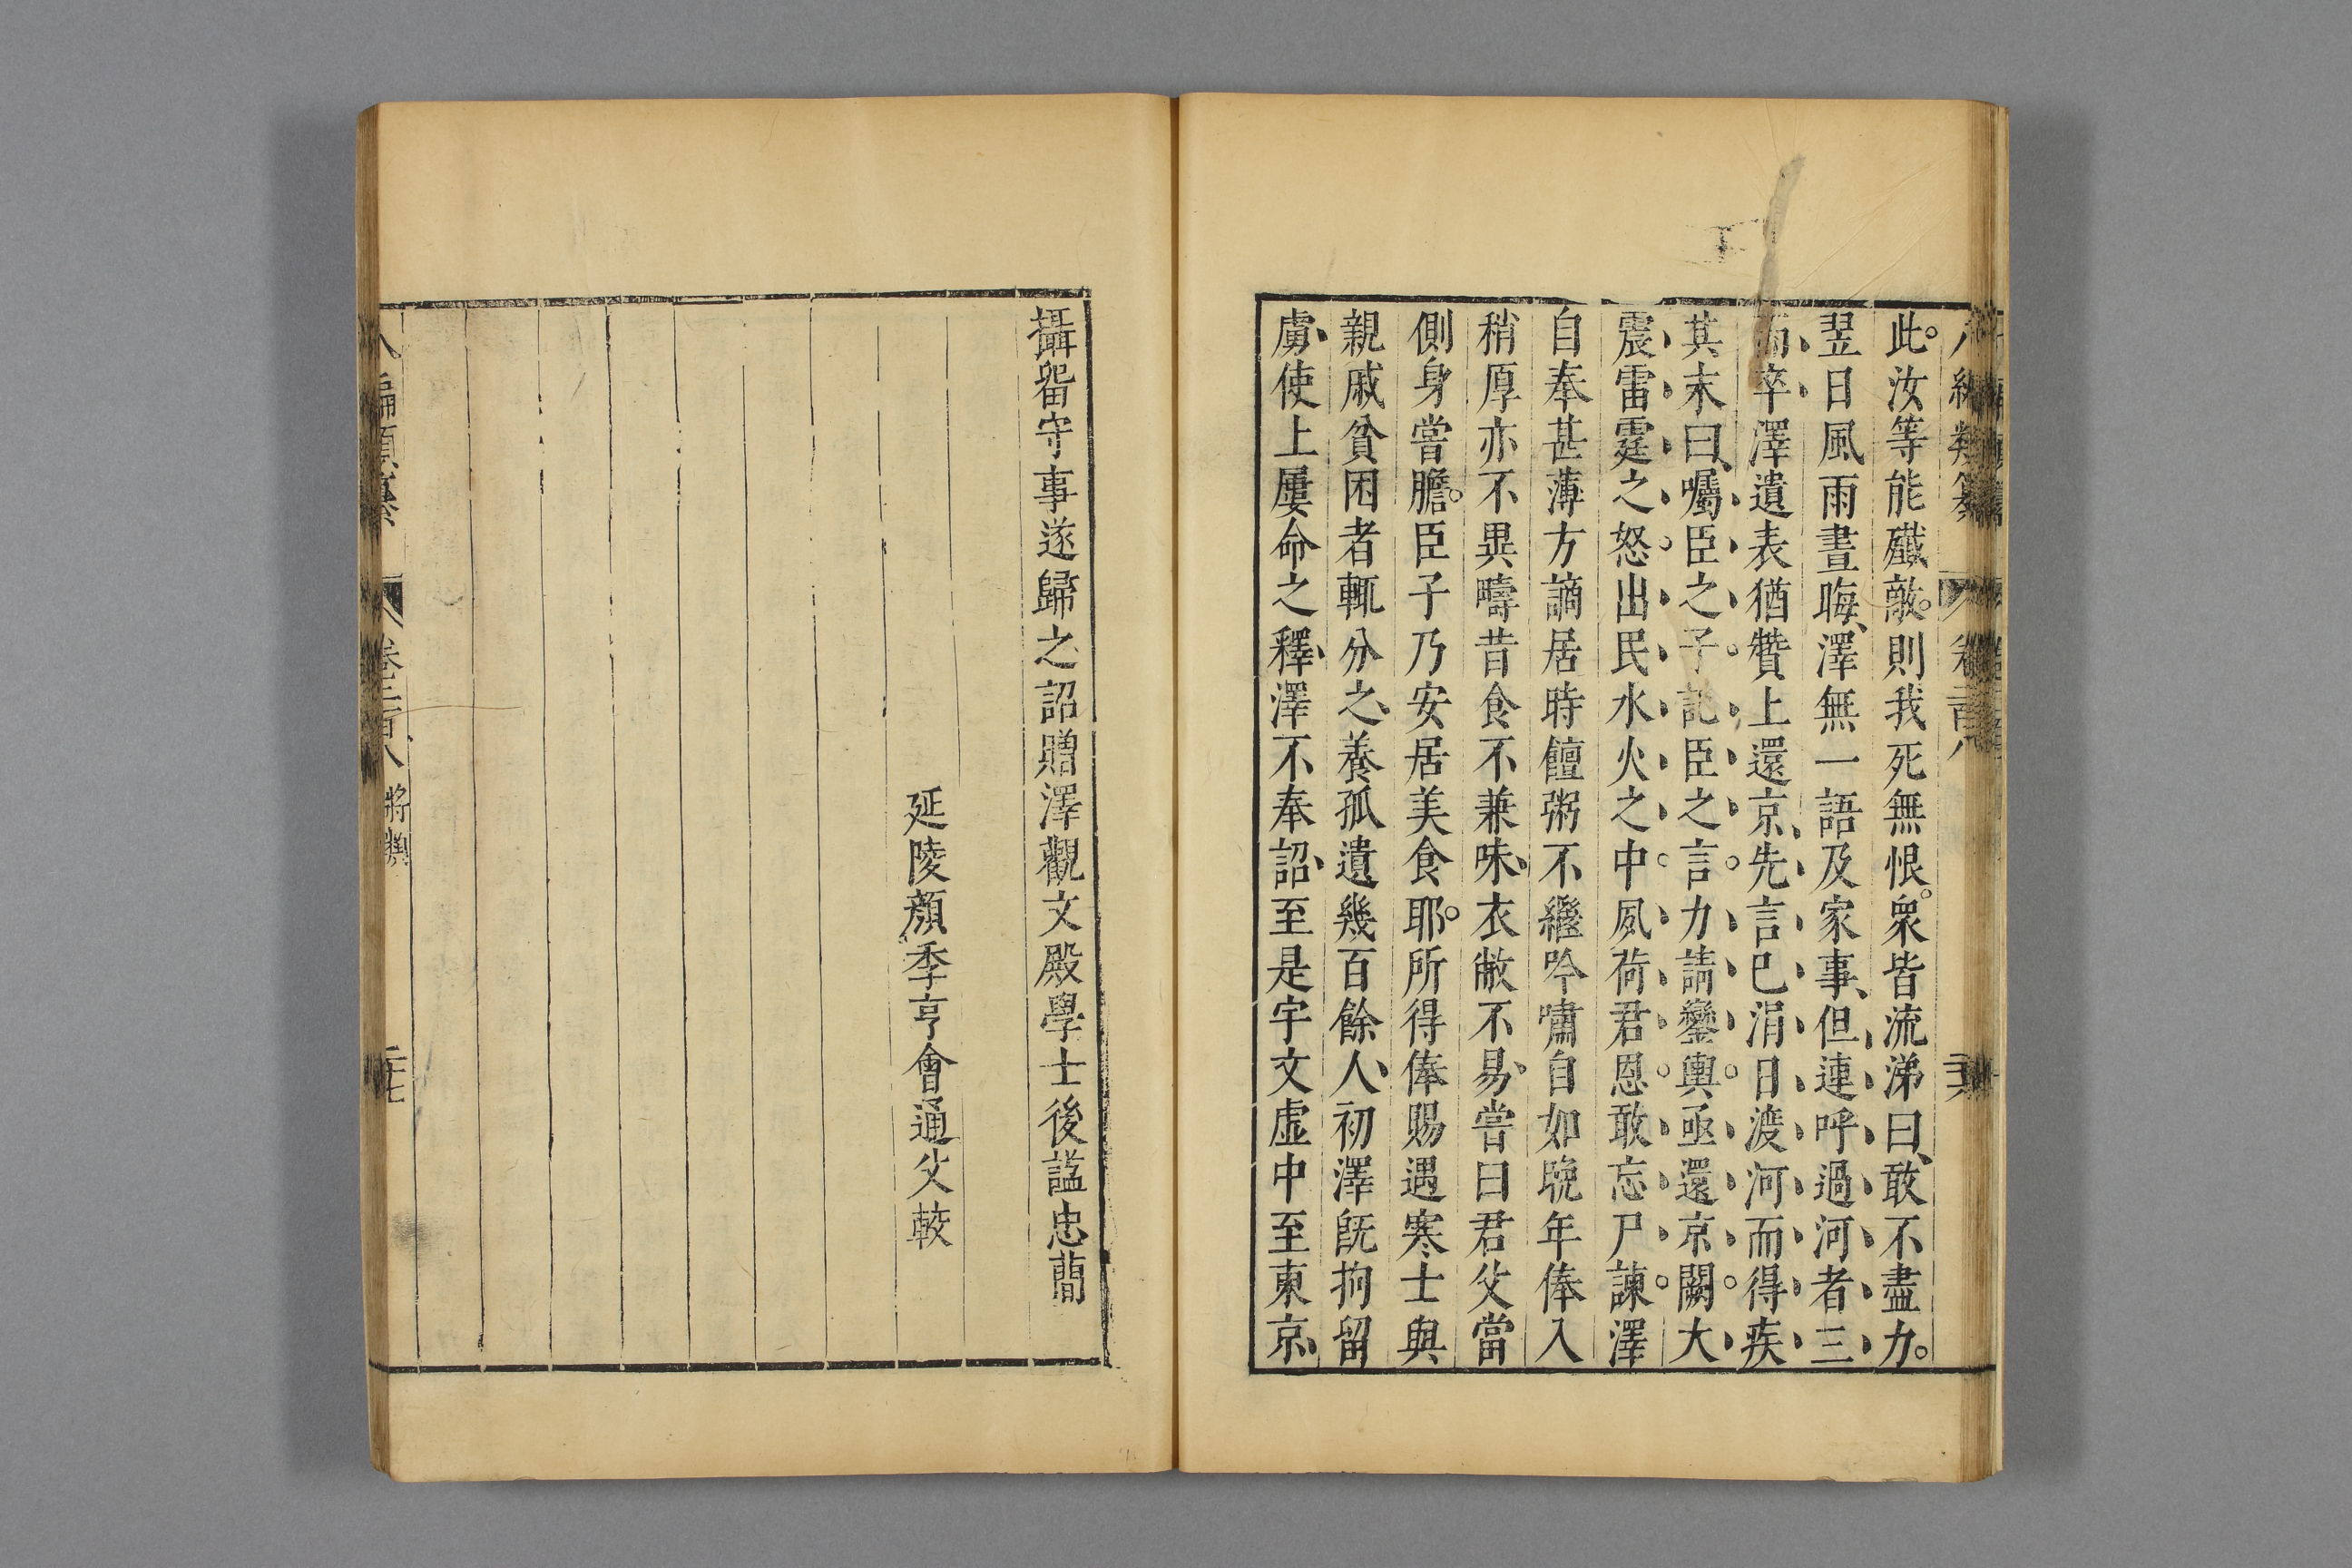 此。汝等能殲敵。則我死無恨。衆皆流涕曰、敢不盡力。
翌日風雨晝晦、澤無一語及家事、但連呼過河者三
而卒、澤遺表猶贊上還京、先言已涓日渡河而得疾
其末曰、囑臣之子。記臣之言。力請鑾輿。亟還京闕。大
震雷霆之怒。出民水火之中。夙荷君恩。敢忘尸諫。澤
自奉甚薄方謫居時饘粥不繼吟嘯自如晚年俸入
稍厚亦不異疇昔食不兼味、衣敝不易、嘗曰君父當
側身嘗膽。臣子乃安居美食耶。所得俸賜遇寒士與
親戚貧困者輒分之、養孤遺幾百餘人、初澤旣拘留
虜、使上屢命之釋、澤不奉詔、至是宇文虛中至東京、
攝留守事遂歸之詔贈澤觀文殿學士後諡忠簡
延陵顏季亨會通父較
八編類纂 卷二百八 將類 二十七